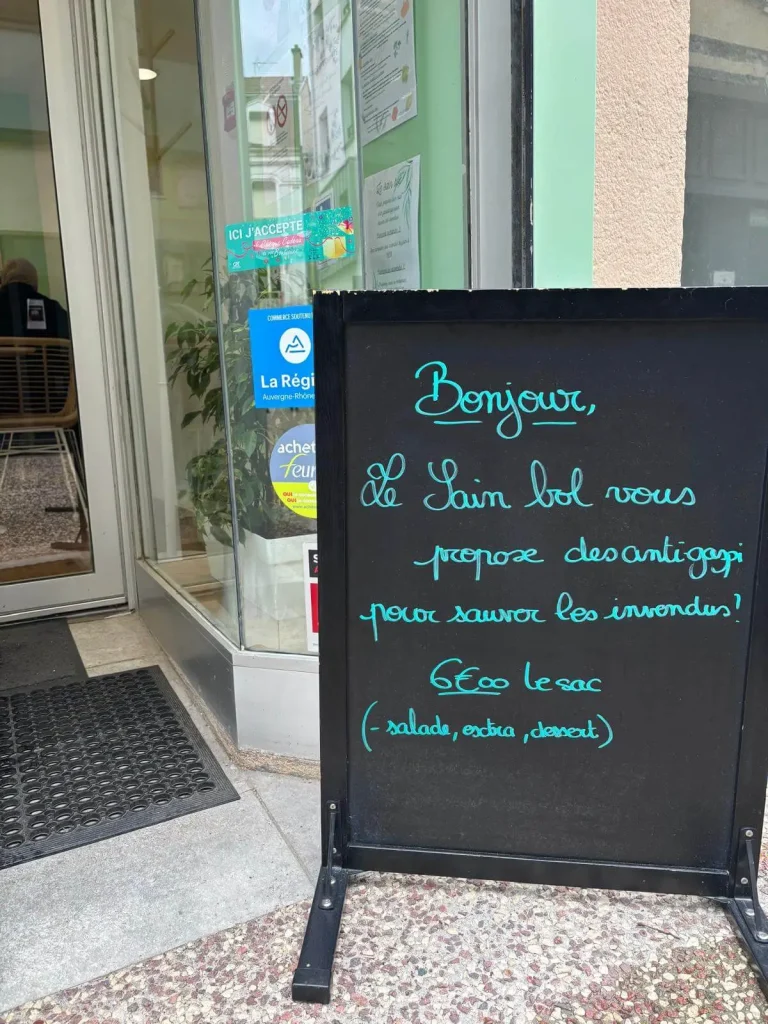 ICI J'ACCEPTE
COMMERCE SOUTENU
La Régi
Auvergne-Rhône
achet
feur
Bonjour,
Le Sain bol vous
propose des anti-gaspi
pour sauver les invendus!
6€00 le sac
(- salade, extra, dessert)